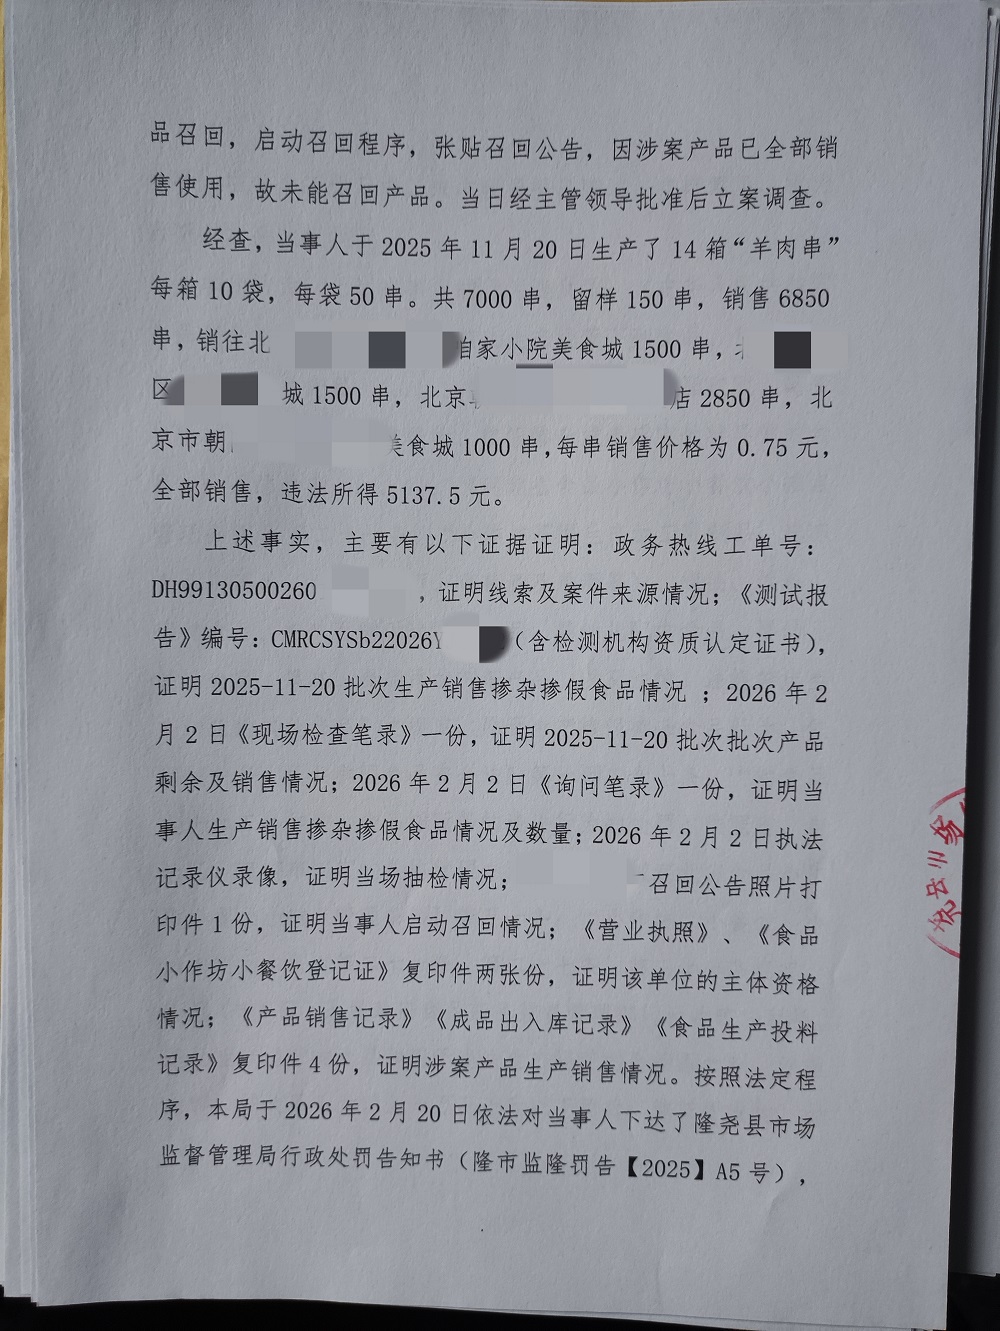 品召回，启动召回程序，张贴召回公告，因涉案产品已全部销
售使用，故未能召回产品。当日经主管领导批准后立案调查。
经查，当事人于 2025 年 11 月 20 日生产了 14 箱“羊肉串”
每箱 10 袋，每袋 50 串。共 7000 串，留样 150 串，销售 6850
串，销往北 家小院美食城 1500 串，
区 城 1500 串，北京 店 2850 串，北
京市朝 美食城 1000 串,每串销售价格为 0.75 元，
全部销售，违法所得 5137.5 元。
上述事实，主要有以下证据证明：政务热线工单号：
DH99130500260 ，证明线索及案件来源情况；《测试报
告》编号：CMRCSYSb22026Y （含检测机构资质认定证书），
证明 2025-11-20 批次生产销售掺杂掺假食品情况 ；2026 年 2
月 2 日《现场检查笔录》一份，证明 2025-11-20 批次批次产品
剩余及销售情况；2026 年 2 月 2 日《询问笔录》一份，证明当
事人生产销售掺杂掺假食品情况及数量；2026 年 2 月 2 日执法
记录仪录像，证明当场抽检情况； 召回公告照片打
印件 1 份，证明当事人启动召回情况；《营业执照》、《食品
小作坊小餐饮登记证》复印件两张份，证明该单位的主体资格
情况；《产品销售记录》《成品出入库记录》《食品生产投料
记录》复印件 4 份，证明涉案产品生产销售情况。按照法定程
序，本局于 2026 年 2 月 20 日依法对当事人下达了隆尧县市场
监督管理局行政处罚告知书（隆市监隆罚告【2025】A5 号），